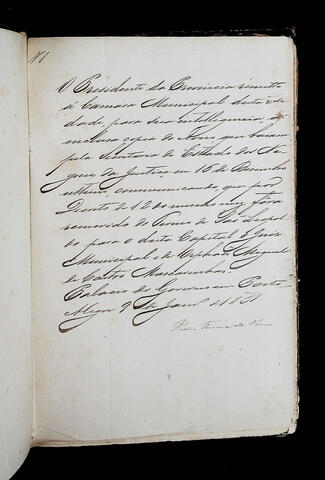 Nº 1
O Presidente da Provincia remette
á Camara Municipal desta Ci-
dade para sua intelligencia, a
inclusa copia do Aviso que baixou
pela Secretaria de Estado dos Ne-
gocios da Justiça em 16 de Dezembro
ultimo, communicando que por
Decreto de 12 do mesmo mez fora
removido do Termo de São Leopol-
do para o desta Capital o Juiz
Municipal e de Orphãos Miguel
de Castro Mascarenhas.
Palacio do Governo em Porto
Alegre 9 de Janrº 1851